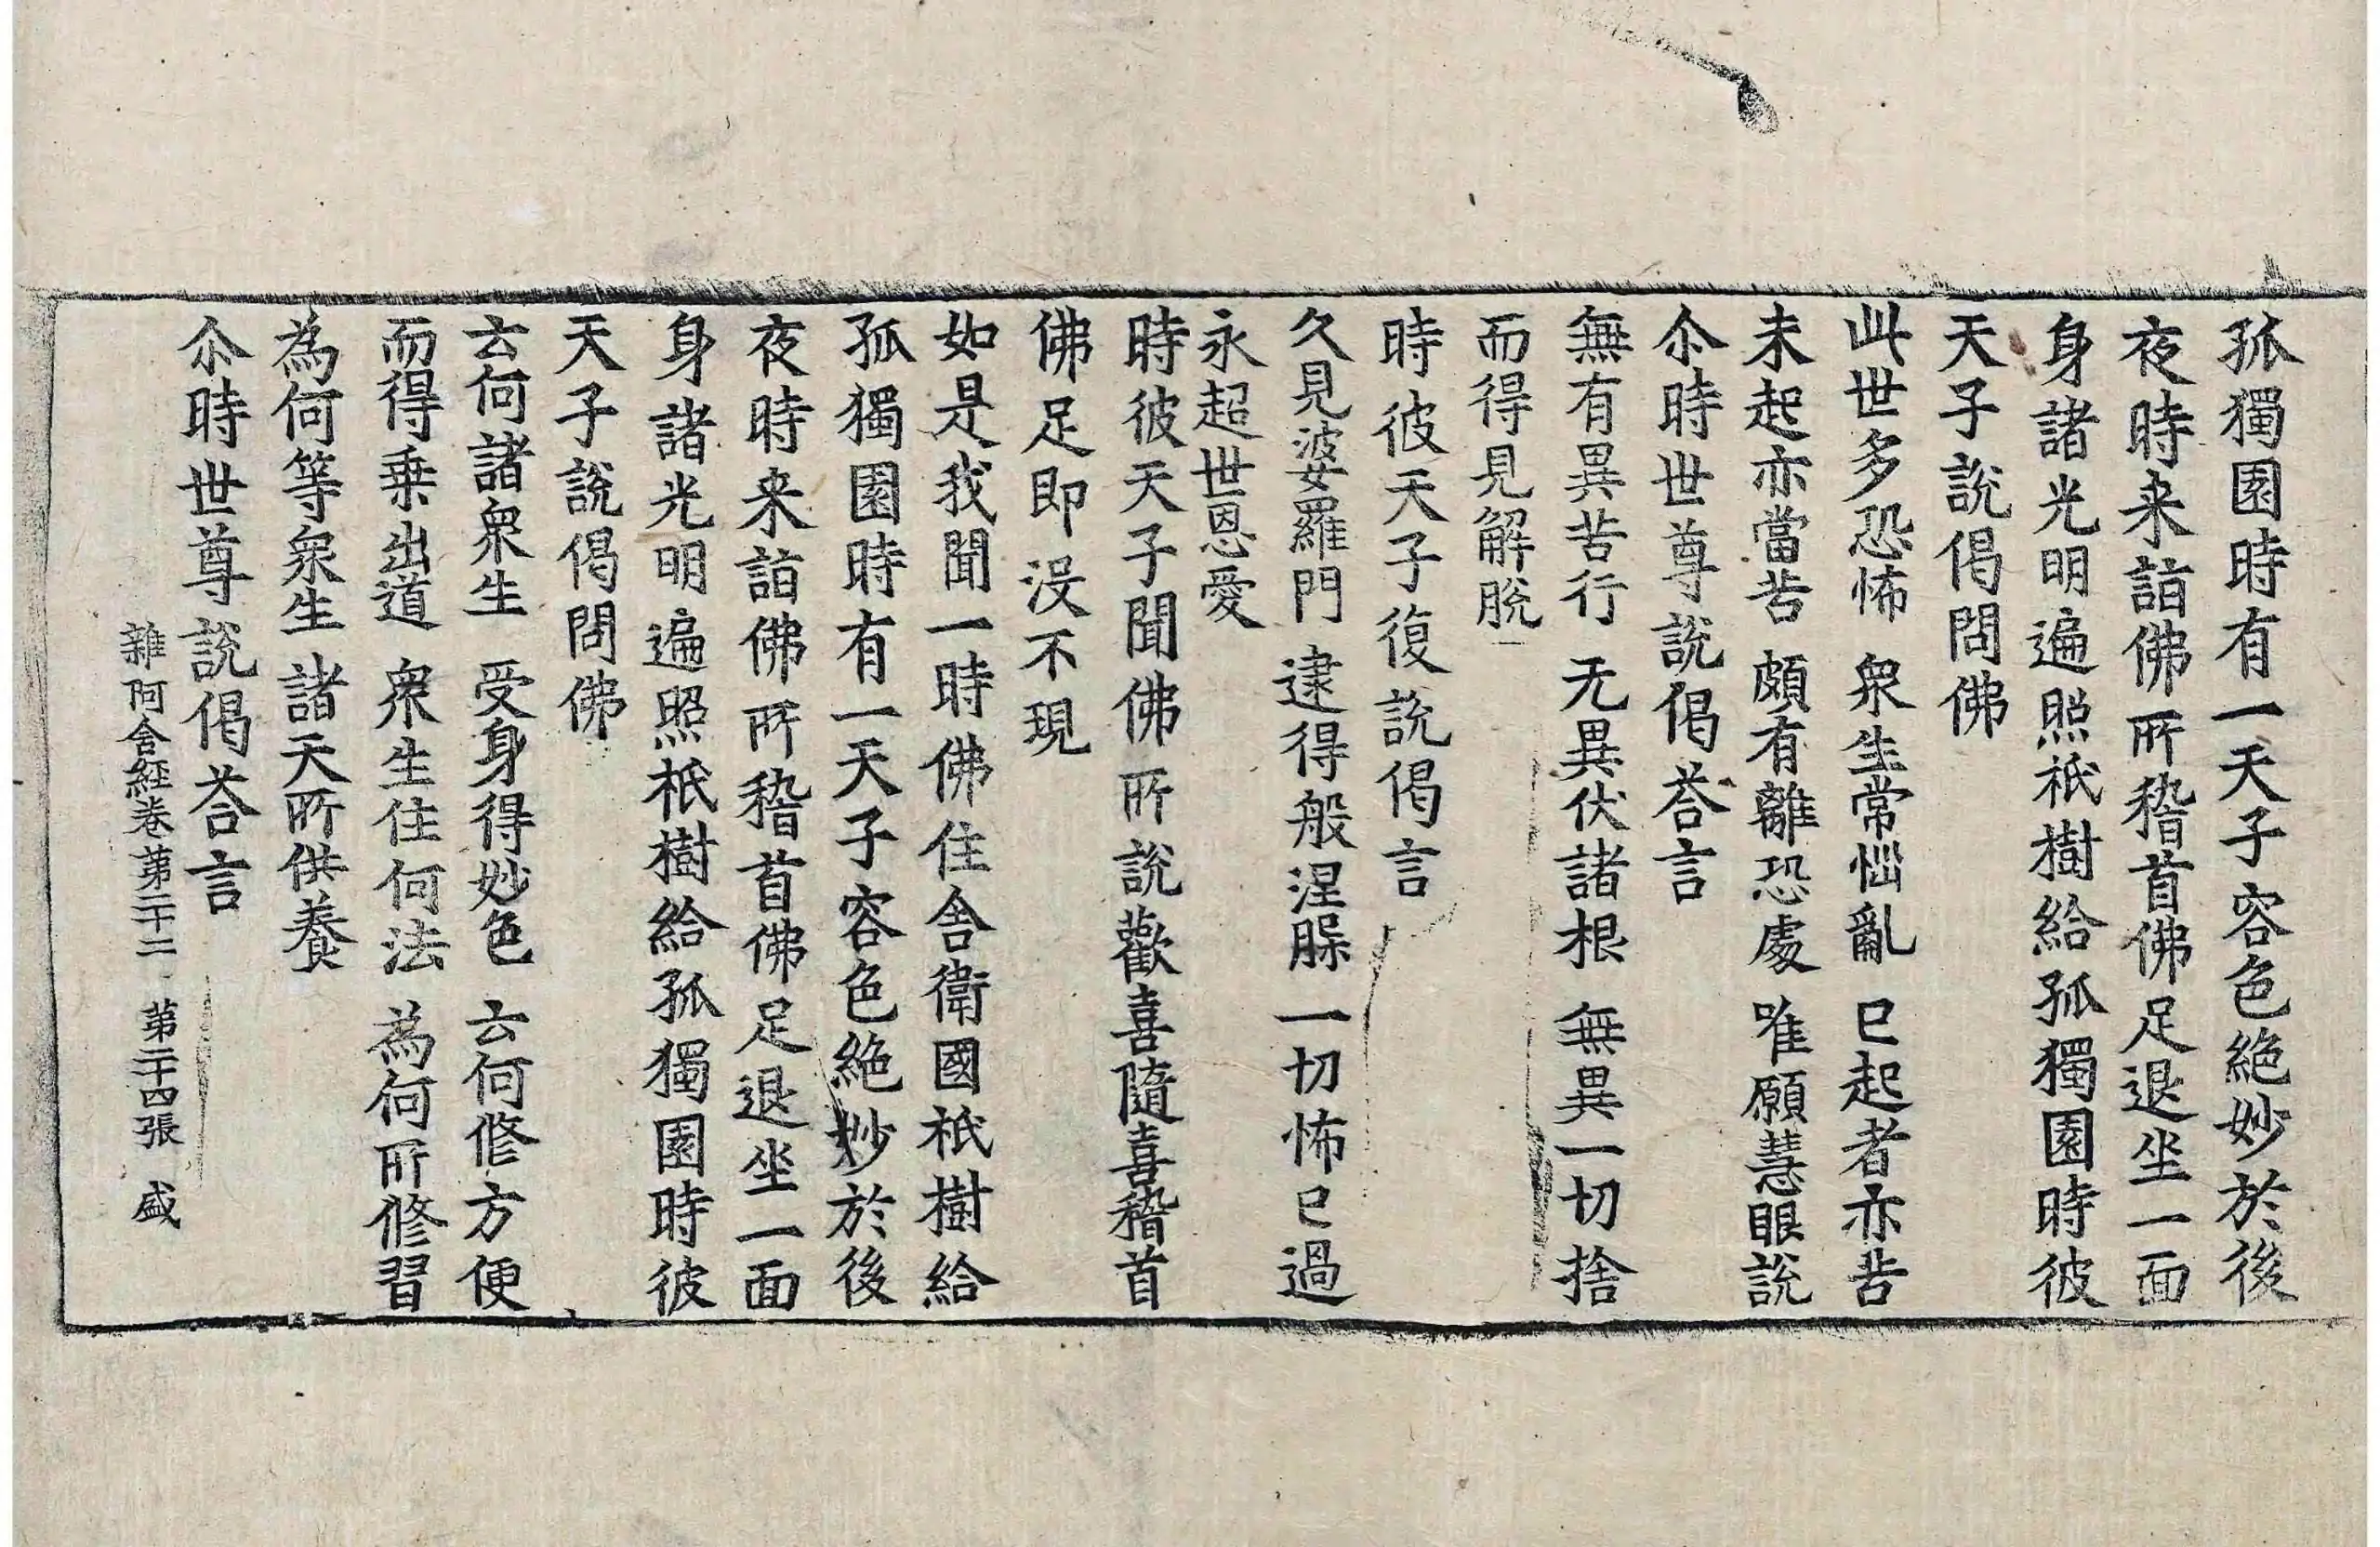 孤獨園時有一天子容色絶妙於後
夜時来詣佛所稽首佛足退坐一面
身諸光明遍照祇樹給孤獨園時彼
天子說偈問佛
此世多恐怖 衆生常惱亂 已起者亦苦
未起亦當苦 頗有離恐處 唯願慧眼說
尒時世尊說偈荅言
無有異苦行 无異伏諸根 無異一切捨
而得見解脫
時彼天子復說偈言
久見婆羅門 逮得般涅槃 一切怖已過
永超世恩愛
時彼天子聞佛所說歡喜隨喜稽首
佛足即没不現
如是我聞一時佛住舍衛國祇樹給
孤獨園時有一天子容色絶妙於後
夜時来詣佛所稽首佛足退坐一面
身諸光明遍照祇樹給孤獨園時彼
天子說偈問佛
云何諸衆生 受身得妙色 云何修方便
而得乗出道 衆生住何法 為何所修習
為何等衆生 諸天所供養
尒時世尊說偈荅言
雜阿含經卷第二十二 第二十四張 盛